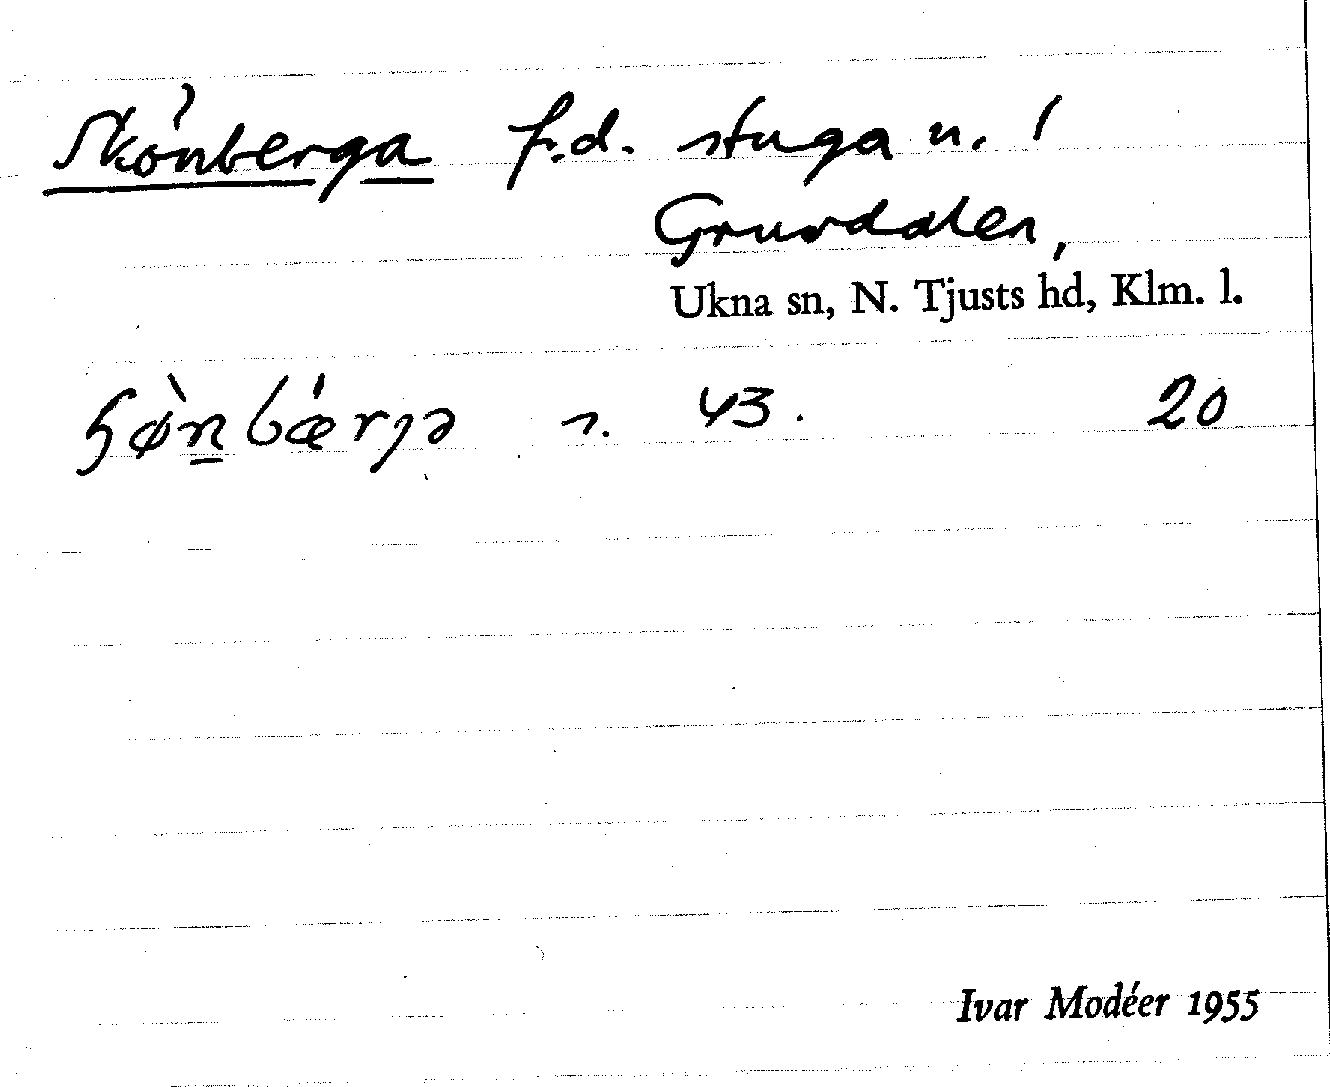 Skönberga f.d. stuga u. /
Gruvdalen,
Ukna sn, N. Tjusts hd, Klm. l.
ɧø̀n bǽrjə s. 43. 20
Ivar Modéer 1955